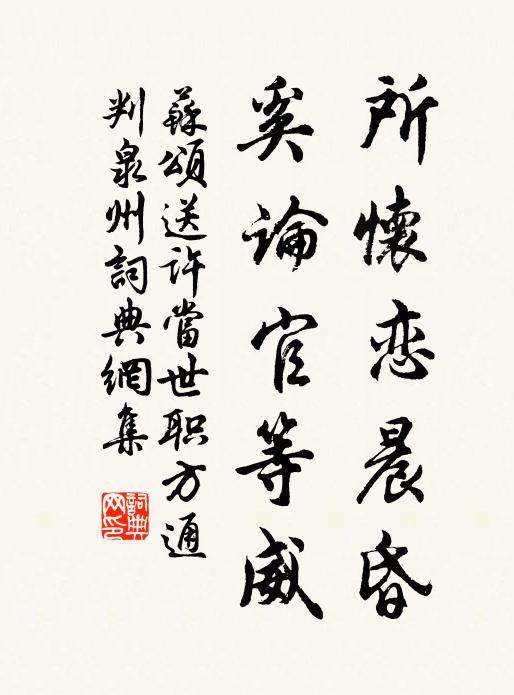 所懷恋晨昏
奚論官等威
蘇頌送許當世职方通
判泉州詞典網集
詞典网印